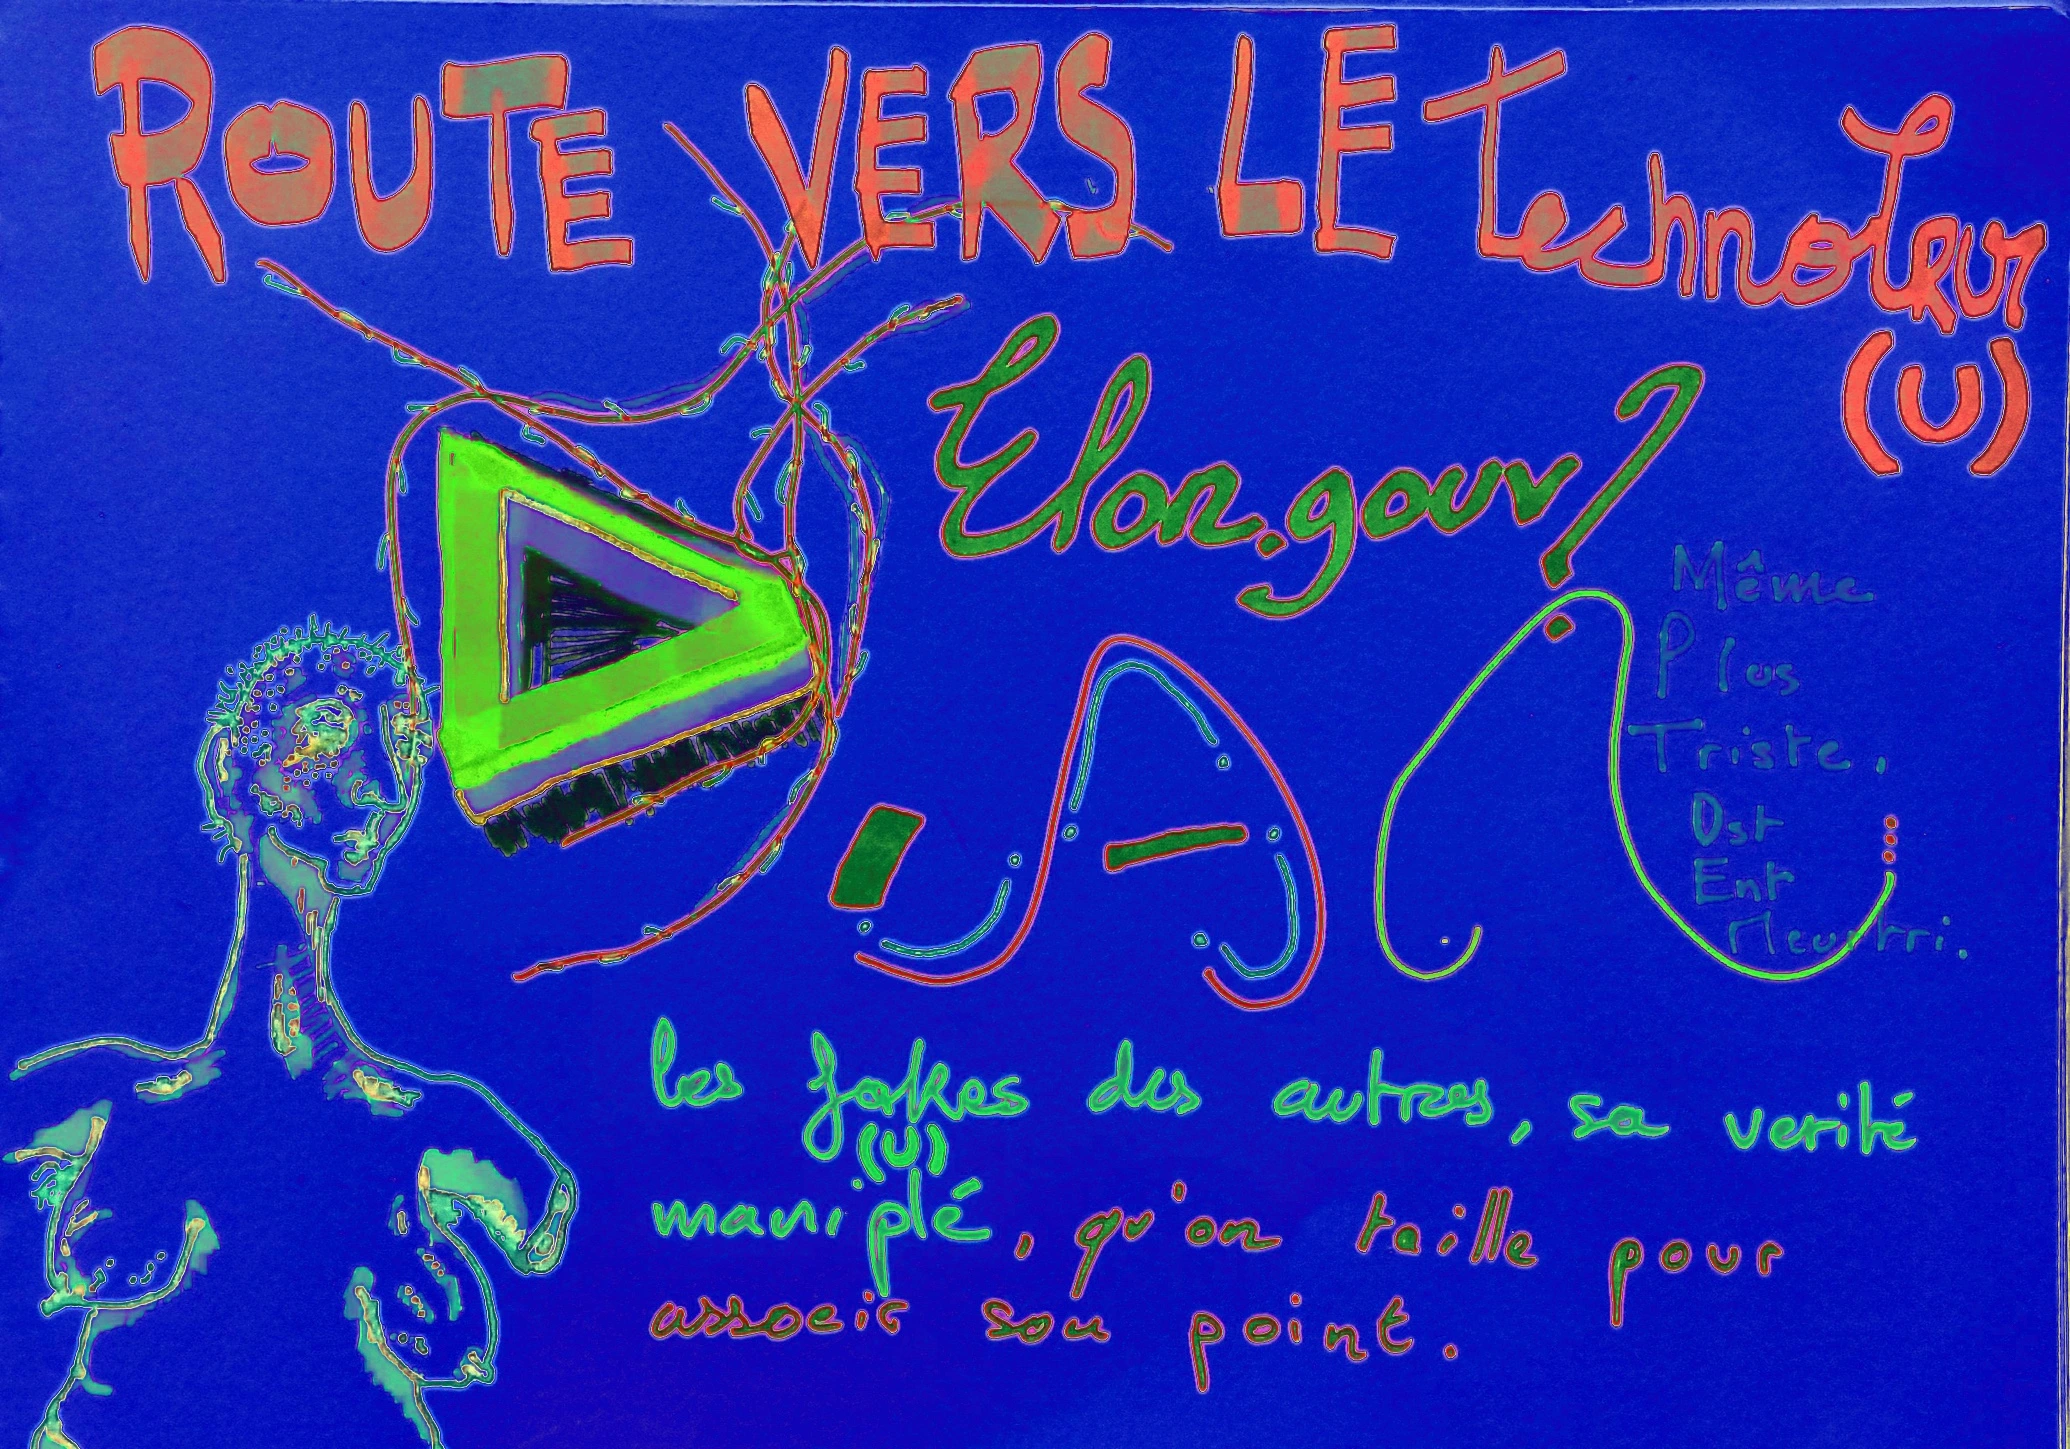 ROUTE VERS LE TechnoTeur
(U)
Elon.gouv?
Même
Plus
Triste,
Ost
Ent
Meurtri.
les fakes des autres, sa verité
(U)
maniplé, qu'on taille pour
associé son point.